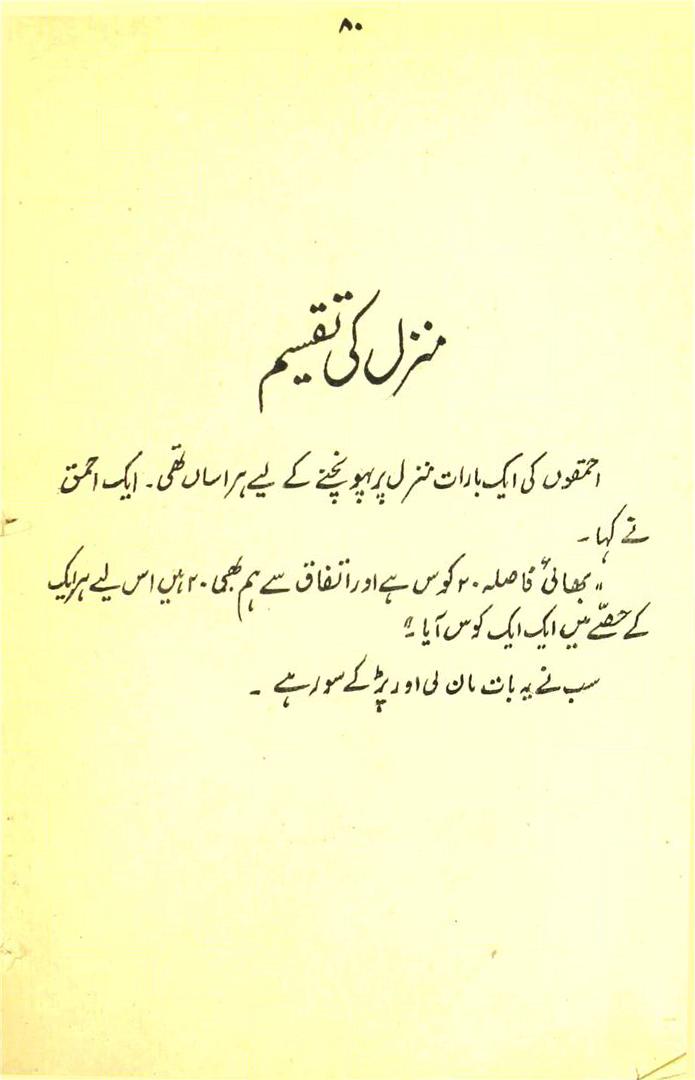 ۸۰
منزل کی تقسیم
احمقوں کی ایک بارات منزل پر پہونچنے کے لیے ہراساں تھی۔ ایک احمق
نے کہا۔
"بھائی فاصلہ ۲۰ کوس ہے اور اتفاق سے ہم بھی ۲۰ ہیں اس لیے ہر ایک
کے حصّے میں ایک ایک کوس آیا۔"
سب نے یہ بات مان لی اور پڑ کے سو رہے ۔